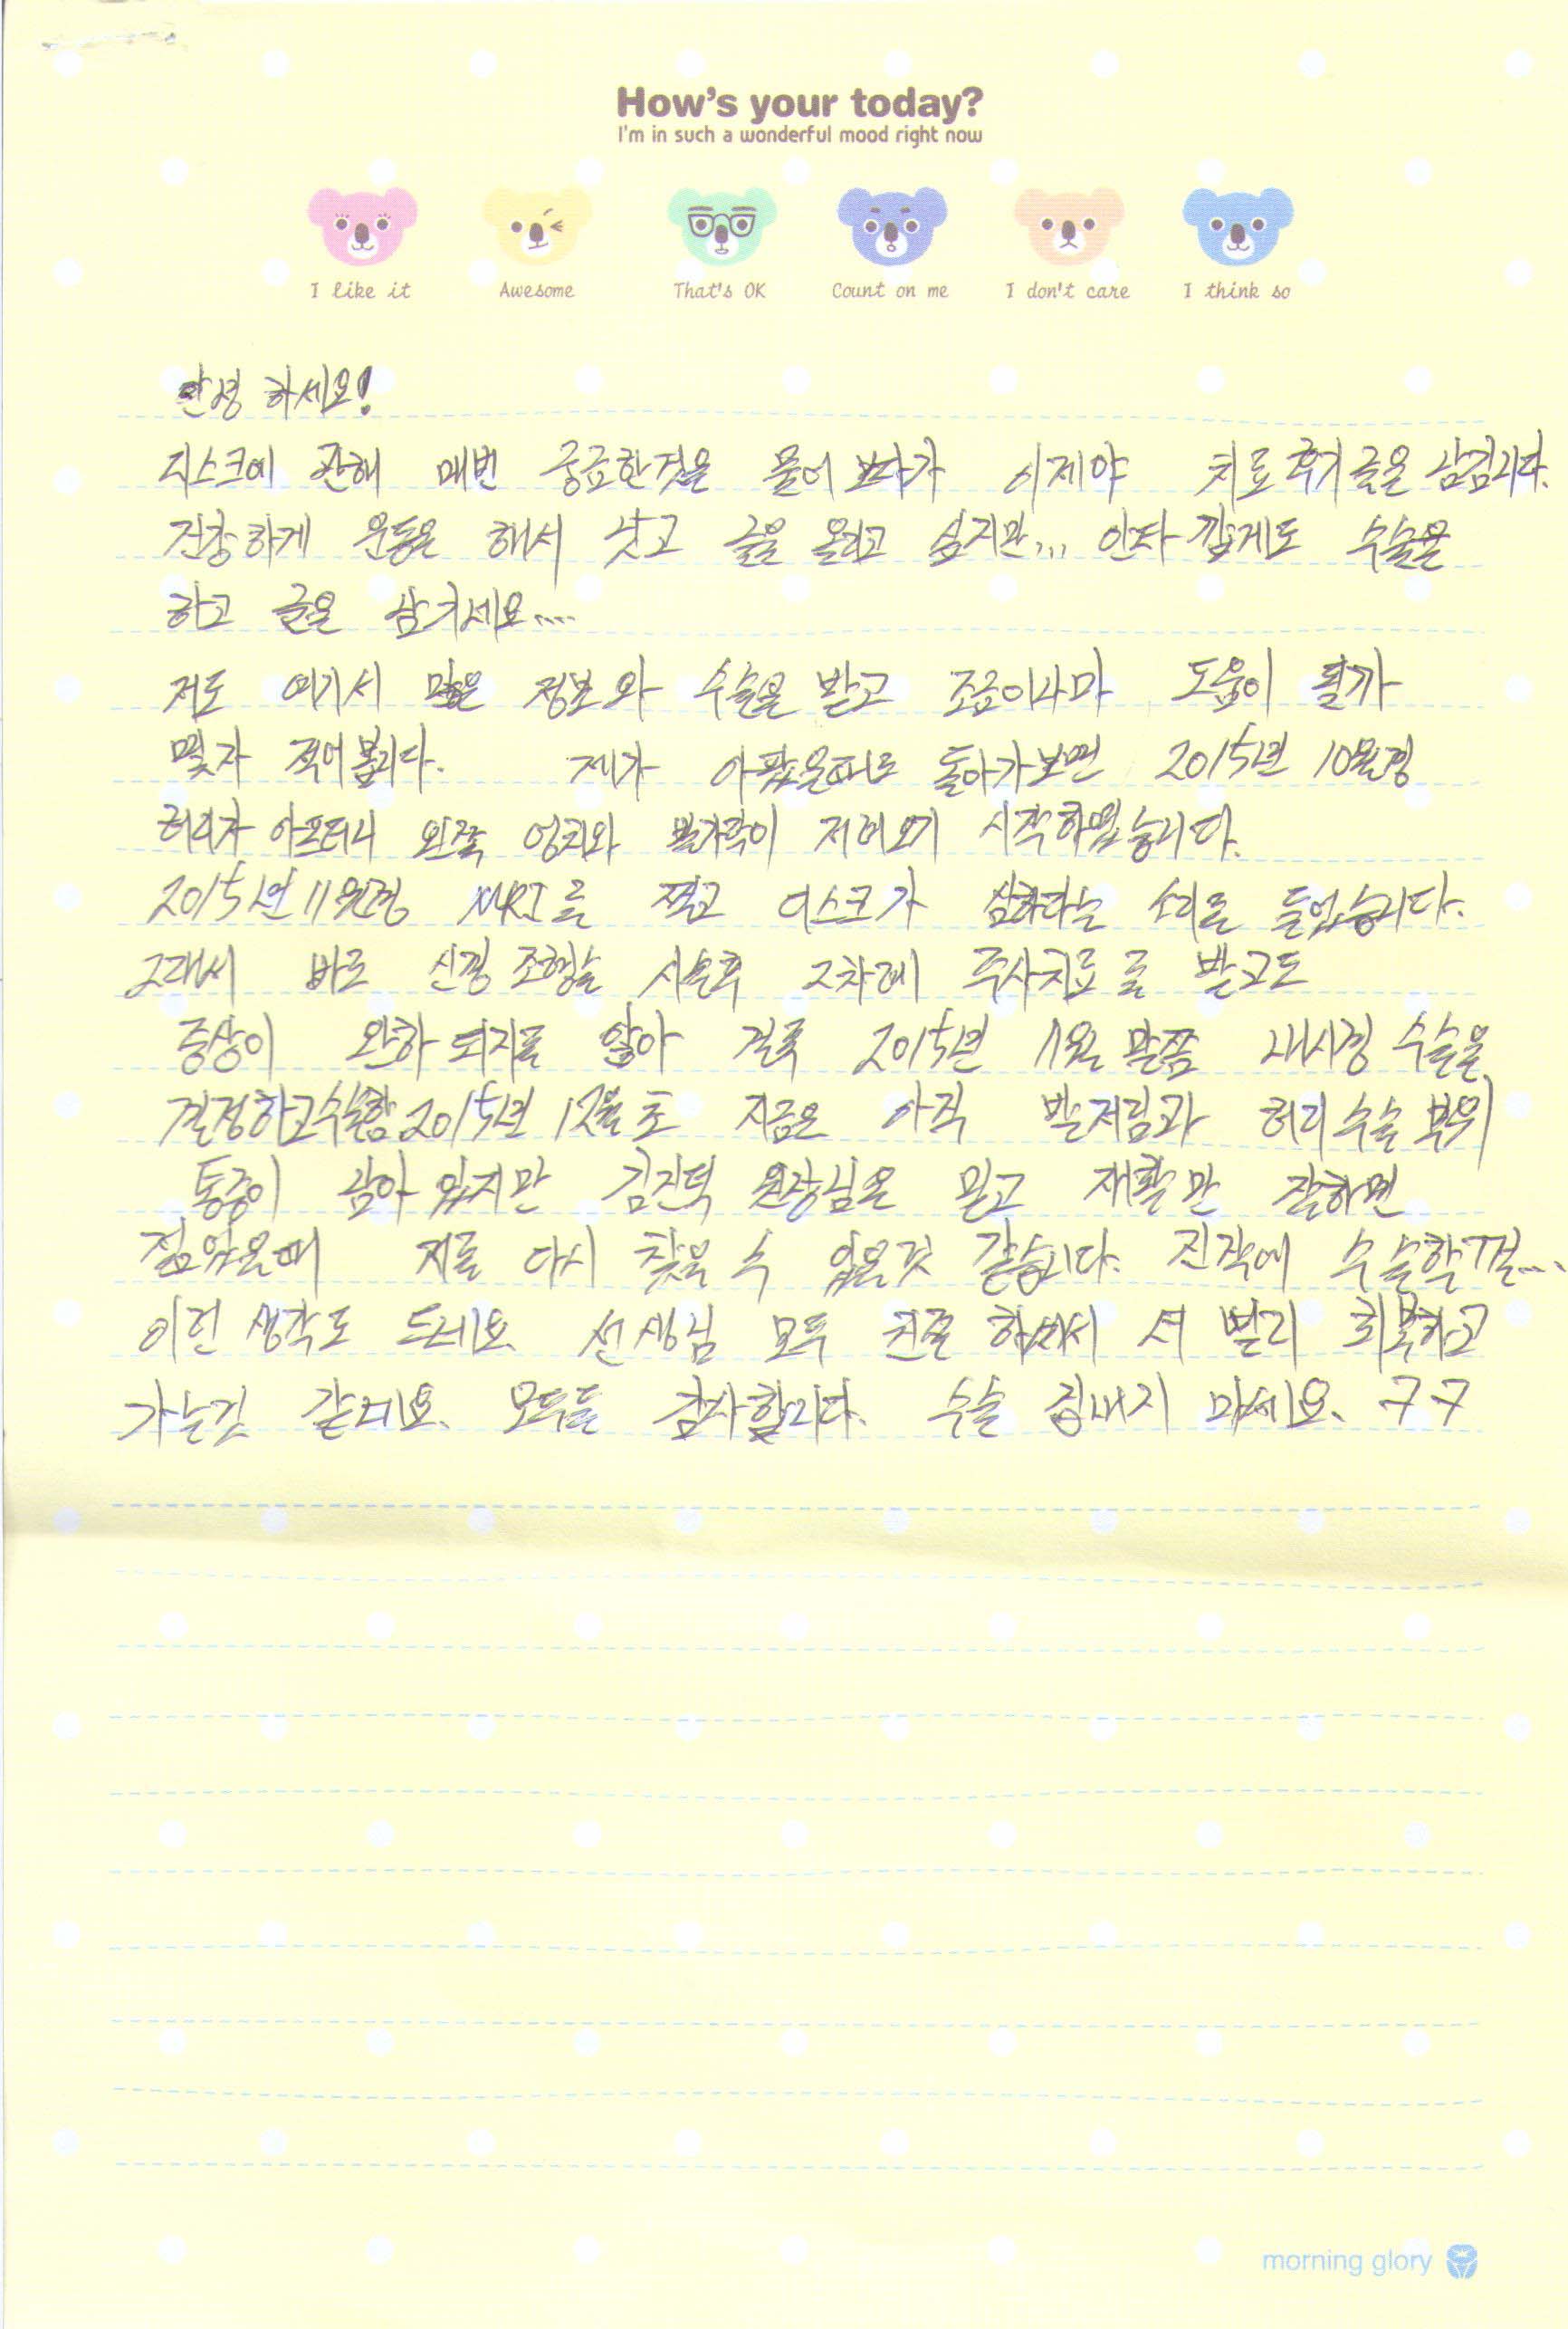 How's your today?
I'm in such a wonderful mood right now
I like it Awesome That's OK Count on me I don't care I think so
안녕 하세요!
디스크에 관해 매번 궁금한것을 물어 보다가 이제야 치료후기 글을 남깁니다.
건강하게 운동을 해서 낫고 글을 올리고 싶지만... 안타 깝게도 수술을
하고 글을 남기네요....
저도 여기서 많은 정보와 수술을 받고 조금이나마 도움이 될까
몇자 적어봅니다. 제가 아팠을때로 돌아가보면 2015년 10월경
허리가 아프더니 왼쪽 엉치와 발가락이 저려오기 시작하였습니다.
2015년 11월경 MRI를 찍고 디스크가 심하다는 소리를 들었습니다.
그래서 바로 신경 조형술 시술후 2차례 주사치료를 받고도
증상이 완화 되지를 않아 결국 2015년 11월 말쯤 내시경 수술을
결정하고수술함 2015년 12월 초 지금은 아직 발저림과 허리 수술 부위
통증이 남아 있지만 김진덕 원장님을 믿고 재활만 잘하면
젊었을때 저를 다시 찾을 수 있을것 같습니다. 진작에 수술할껄...
이런 생각도 드네요. 선생님 모두 친절 하셔서 더 빨리 회복하고
가는것 같네요. 모두들 감사합니다. 수술 겁내지 마세요. ㅋㅋ
morning glory